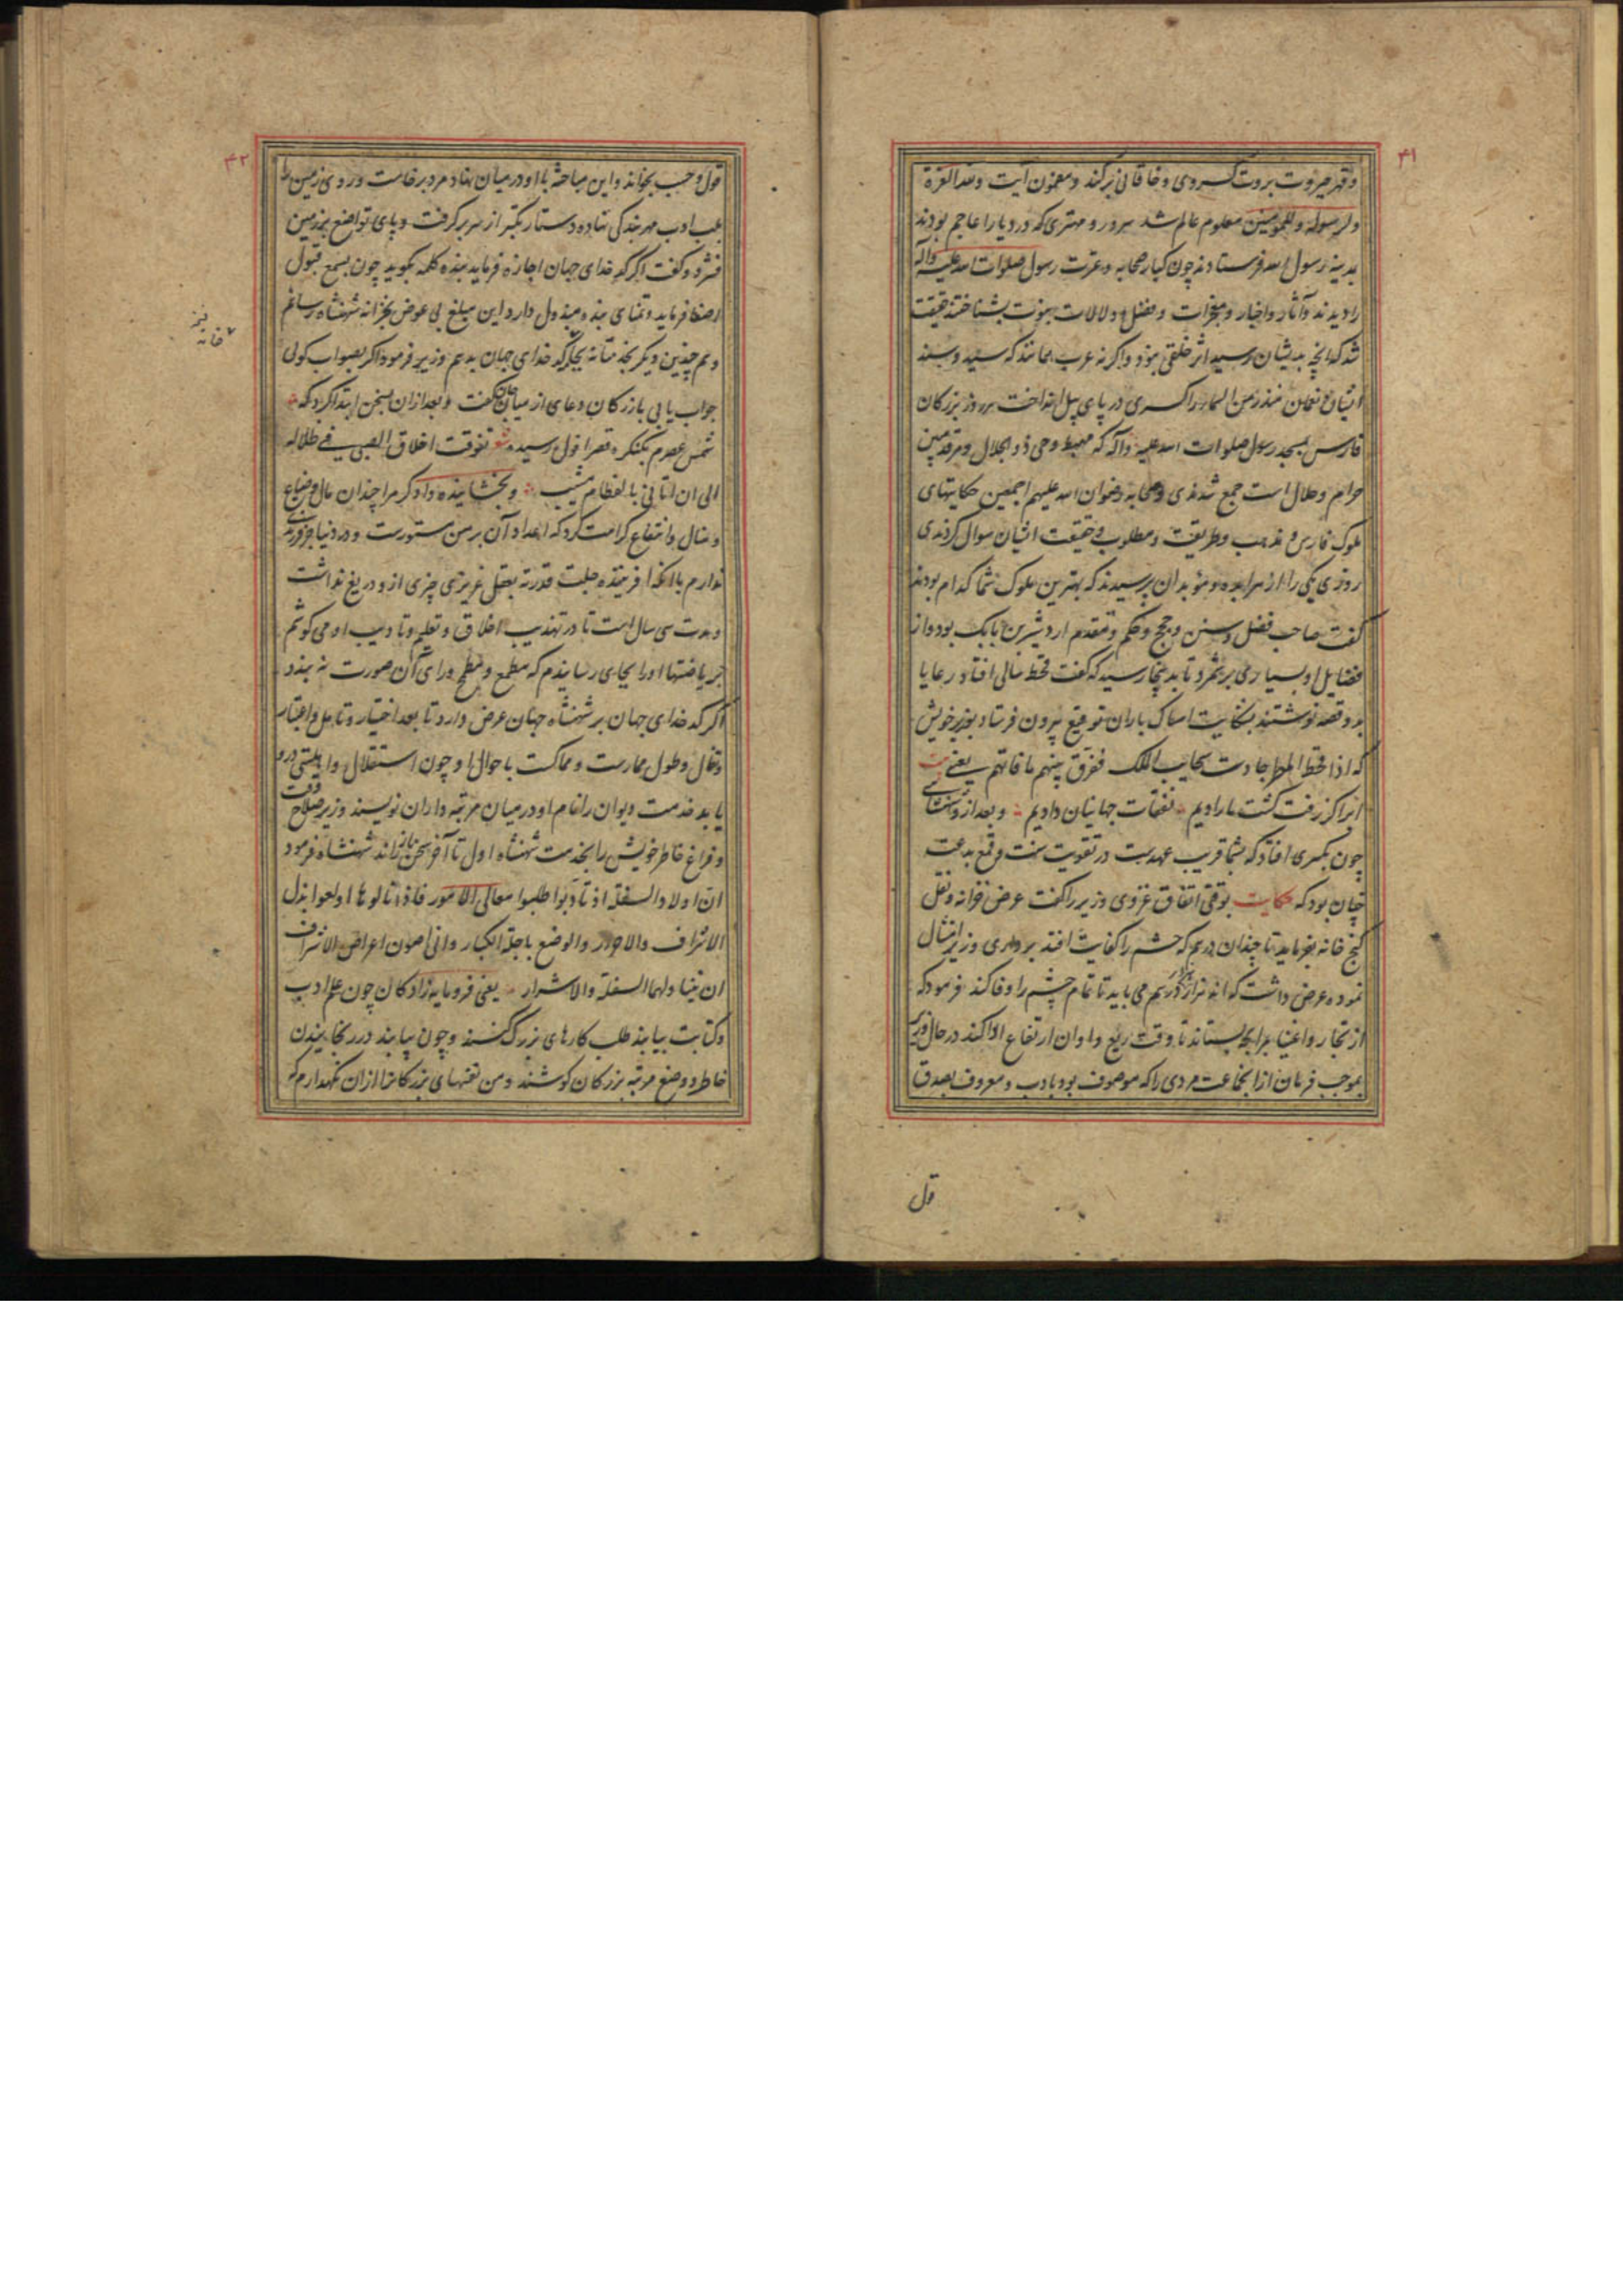 ۴۱
و قهر جبروت بروت کسروی و خاقانی برکند و مضمون آیت و لله العزة
ولرسوله وللمومنین معلوم عالم شد سرور و مهتری که در دیار اعاجم بودند
بمدینه رسول الله فرستادند چون کبار صحابه و عترت رسول صلوات الله علیه وآله
را دیدند و آثار و اخبار و معجزات و فضل و دلالات نبوت بشناختند حقیقت
شد که آنچه بدیشان رسید اثر خلقی نبود و اگر نه عرب همانند که سید و سند
ایشان نعمان منذر من السما را کسری در پای پیل انداخت هر روز بزرگان
فارس بمسجد رسول صلوات الله علیه وآله که مهبط وحی ذو الجلال و مرقد مبین
حرام و حلال است جمع شدندی و صحابه رضوان الله علیهم اجمعین حکایتهای
ملوک فارس و مذهب و طریقت و مطلوب و حقیقت ایشان سوال کردندی
روزی یکی را از هرابده و موبدان پرسیدند که بهترین ملوک شما کدام بودند
گفت صاحب فضل و سنن و حجج و حکم و متقدم اردشیر بن بابک بود و از
فضایل او بسیاری برشمرد تا بدینجا رسید که گفت قحط سالی افتاد رعایا
بدو قصه نوشتند بشکایت امساک باران توقیع بیرون فرستاد بوزیر خویش
که اذا قحط المطر جادت سحایب الملک ففرق بینهم ما فاتهم یعنی بیت
ابر اگر زفت گشت ما رادیم نفقات جهانیان دادیم و بعد از و سخن
چون بکسری افتاد که بشما قریب عهدست در تقویت سنت و قمع بدعت
چنان بود که حکایت بوقتی اتفاق غزوی وزیر را گفت عرض خزانه و نقل
گنج خانه بفرماید تا چندان درهم که حشم را کفایت افتد برداری وزیر امتثال
نموده عرض داشت که اند هزار درهم می باید تا تمام حشم را وفا کند فرمود که
از تجار و اغنیا بمرابحه بستانند تا وقت ریع و اوان ارتفاع ادا کند در حال وزیر
بموجب فرمان از آنجماعت مردی را که موصوف بود بادب و معروف بصدق
قول
۴۲
قول و حسب بخواند و این مباحثه با او در میان نهاد مرد برخاست و روی زمین را
بلب ادب مهر بندگی نهاده دستار تکبر از سر برگرفت و پای تواضع بر زمین
فشرد و گفت اگر کدخدای جهان اجازه فرماید بنده کلمه بگوید چون بسمع قبول
اصغا فرماید و تمنای بنده مبذول دارد این مبلغ بی عوض بخزانه شهنشاه رسانم
و هم چندین دیگر بخدمتانه بکدخدای جهان بدهم وزیر فرمود اگر بصواب گوئی
جواب یابی بازرگان دعای از میان جان گفت و بعد از ان سخن ابتدا کرد که
شمس عمرم بکنگره قصر افول رسیده شعر تفوقت اخلاق الصبی فی ظلاله
الی ان اتانی بالفطام مشیب و بخشاینده دادگر مرا چندان مال و ضیاع
و منال و امتاع کرامت کرد که اعداد آن بر من مستورست و در دنیا جز فرزندی
ندارم با آنکه آفریننده جلت قدرته بعقل غریزی چیزی از و دریغ نداشت
و مدت سی سال است تا در تهذیب اخلاق و تعلیم و تادیب او می کوشم
بریاضتها او را بجای رسانیدم که مطمع و مطمح ورای آن صورت نه بندد
اگر کدخدای جهان بر شهنشاه جهان عرض دارد تا بعد اختبار و تامل و اعتبار
و تفال و طول ممارست و مماکست باحوال او چون استقلال و اهلیتی درو
یابد خدمت دیوان را نام او در میان مرتبه داران نویسند وزیر صلاح وقت
و فراغ خاطر خویش را بخدمت شهنشاه اول تا آخر سخن باز راند شهنشاه فرمود
ان اولاد السفلة اذ تادبوا طلبوا معالی الامور فاذا نالوها اولعوا بذل
الاشراف والاحرار والوضع باجلة الکبار وانی اصون اعراض الاشراف
ان یتناولها السفلة والاشرار یعنی فرومایه زادگان چون علم ادب
و کتابت بیابند طلب کارهای بزرگ کنند و چون بیابند در رنجانیدن
خاطر و وضع مرتبه بزرگان کوشند و من نفسهای بزرگانرا ازان نگهدارم که
خانه